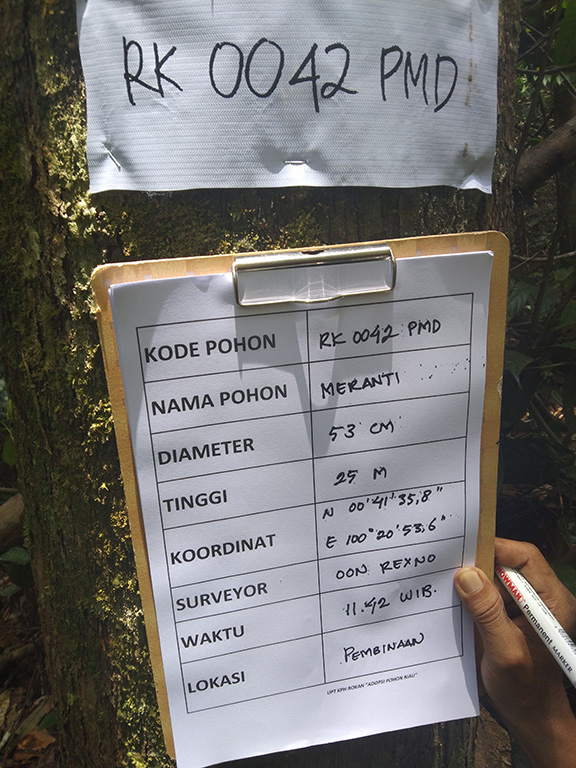 RK 0042 PMD
KODE POHON RK 0042 PMD
NAMA POHON MERANTI
DIAMETER 53 CM
TINGGI 25 M
KOORDINAT N 00°41'35,8"
E 100°20'53,6"
SURVEYOR OON REXNO
WAKTU 11.42 WIB.
LOKASI PEMBINAAN
UPT KPH ROKAN "ADOPSI POHON RIAU"
SNOWMAN Permanent MARKER